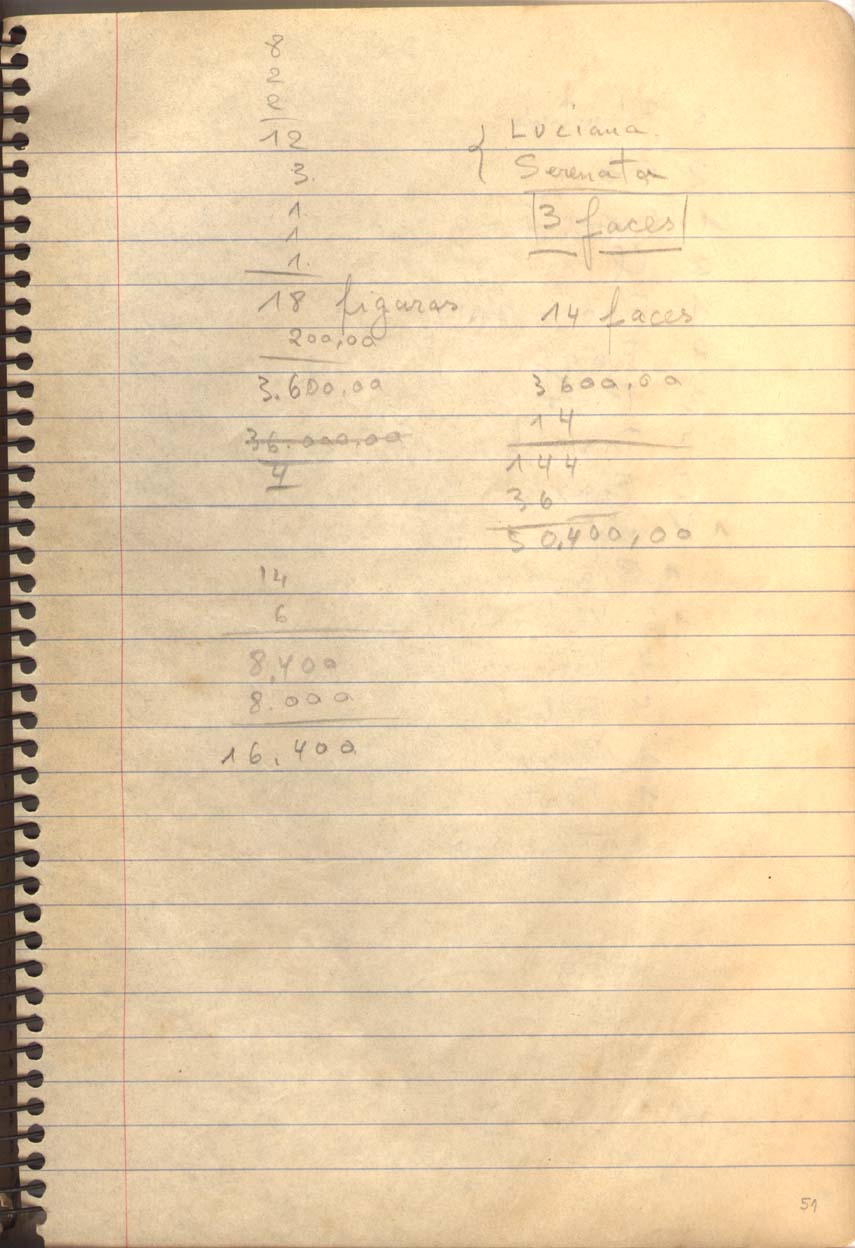 8
2
2
12
3.
1.
1
1.
18 figuras
200,00
3.600,00
36.000,00
4
14
6
8,400
8.000
16.400
{ Luciana.
Serenata
3 faces
14 faces
3600,00
14
144
36
50,400,00
51